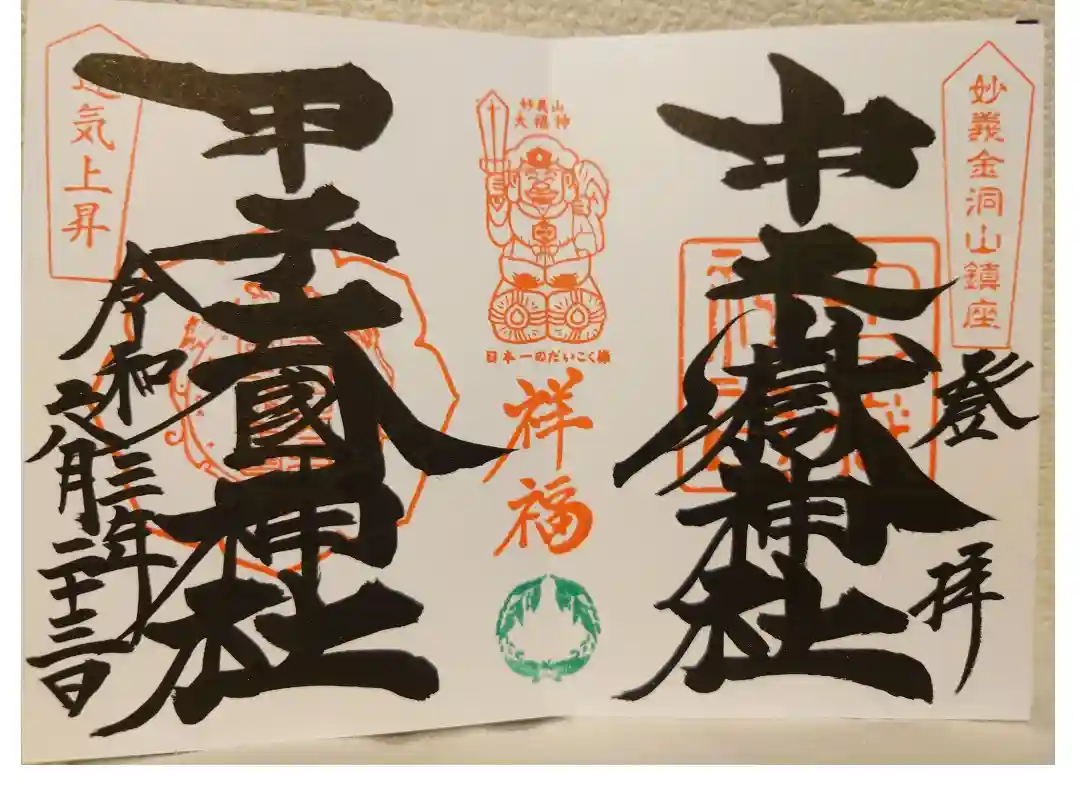 妙義金洞山鎮座
登拝
中之嶽神社
妙義山
大福神
日本一のだいこく様
祥福
甲子大國神社
運気上昇
令和三年
五月二十三日